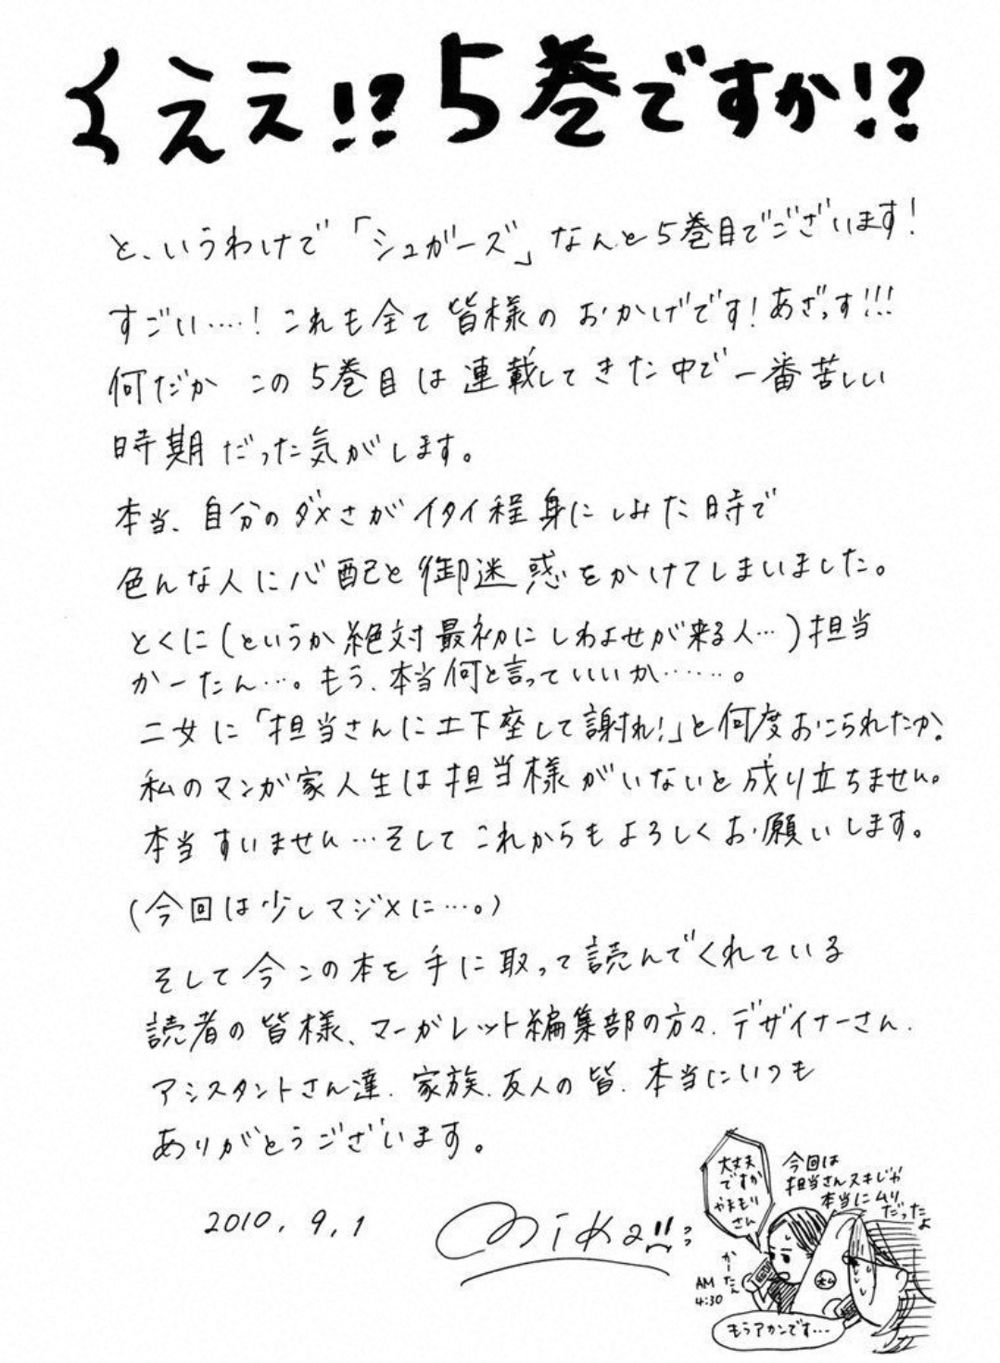 くええ!? 5巻ですか!?
と、いうわけで「シュガーズ」なんと5巻目でございます!
すごい‥‥! これも全て皆様のおかげです! あざっす!!!
何だか この5巻目は連載してきた中で一番苦しい
時期だった気がします。
本当、自分のダメさがイタイ程身にしみた時で
色んな人に心配と御迷惑をかけてしまいました。
とくに(というか絶対最初にしわよせが来る人…)担当
かーたん…。もう、本当何と言っていいか‥‥‥。
二女に「担当さんに土下座して謝れ!」と何度おこられたか。
私のマンガ家人生は担当様がいないと成り立ちません。
本当すいません…そしてこれからもよろしくお願いします。
(今回は少しマジメに…。)
そして今この本を手に取って読んでくれている
読者の皆様、マーガレット編集部の方々、デザイナーさん、
アシスタントさん達、家族、友人の皆、本当にいつも
ありがとうございます。
2010.9.1
Mika
大丈夫
ですか
やまもり
さん
今回は
担当さんヌキじゃ
本当にムリ
だったよ
かーたん
AM
4:30
もうアカンです…